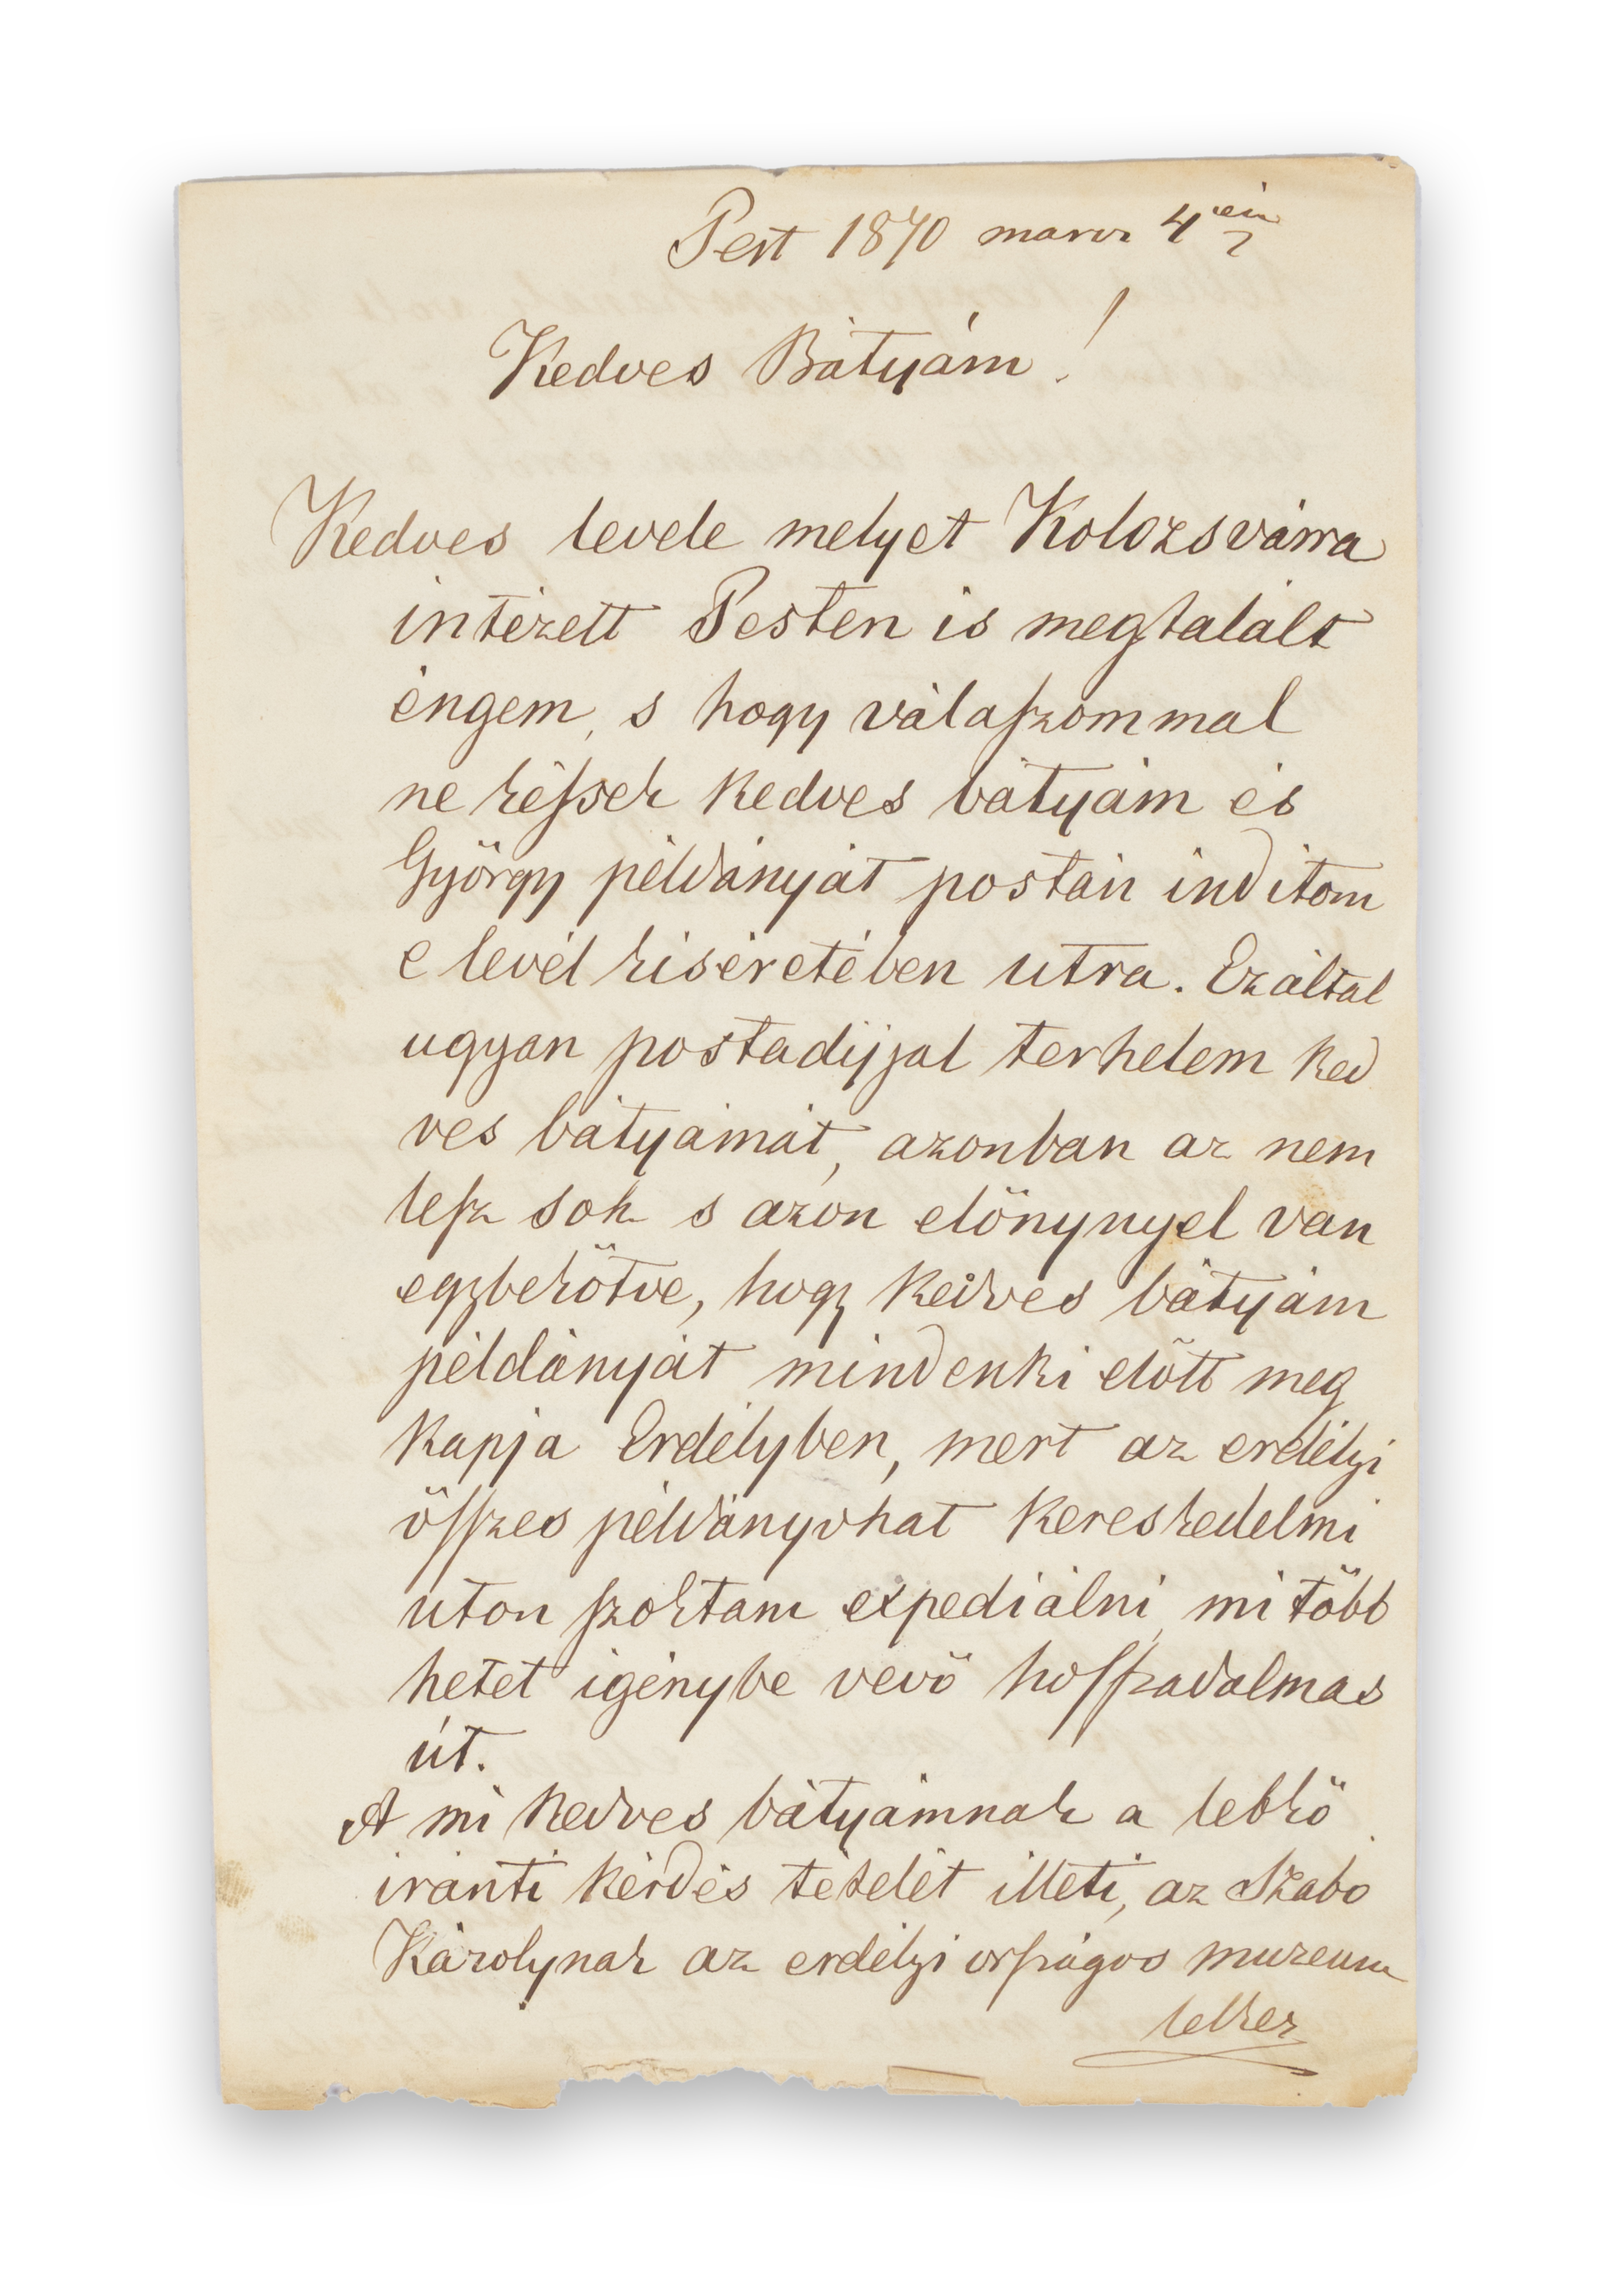 Pest 1870 marcz 4én
Kedves Bátyám!
Kedves levele melyet Kolozsvárra
intézett Pesten is megtalált
éngem, s hogy válaszommal
ne késsek kedves bátyám és
György példányát postán inditom
e levél kiséretében utra. Ezáltal
ugyan postadijjal terhelem ked
ves bátyámat, azonban az nem
lesz sok s azon előnynyel van
egybekötve, hogy kedves bátyám
példányát mindenki előtt meg
kapja Erdélyben, mert az erdélyi
összes példányokat kereskedelmi
uton szoktam expediálni, mi több
hetet igénybe vevő hosszadalmas
út.
A mi kedves bátyámnak a lebkő
iránti kérdés tételét illeti, az Szabo
Károlynak az erdélyi országos muzeum